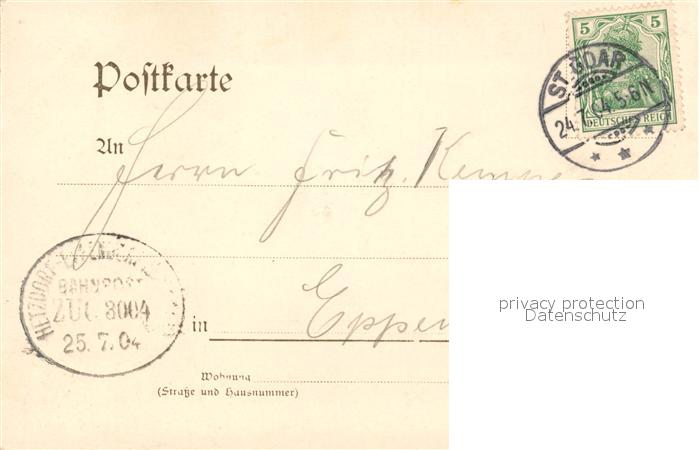 5 5
DEUTSCHES REICH
ST. GOAR
24.7.04.5-6N
Postkarte
An Herrn Fritz Kempe
BAHNPOST
ZUG 3004
25.7.04
in Eppen
Wohnung
(Straße und Hausnummer)
privacy protection
Datenschutz